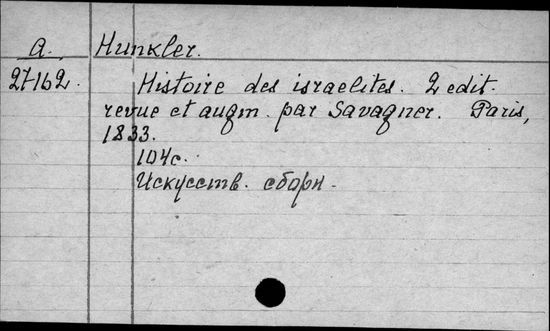 A. Hunkler.
27-162. Histoire des israelites. 2 edit.
revue et augm. par Savagner. Paris,
1833.
104c.
Искусств. сборн.